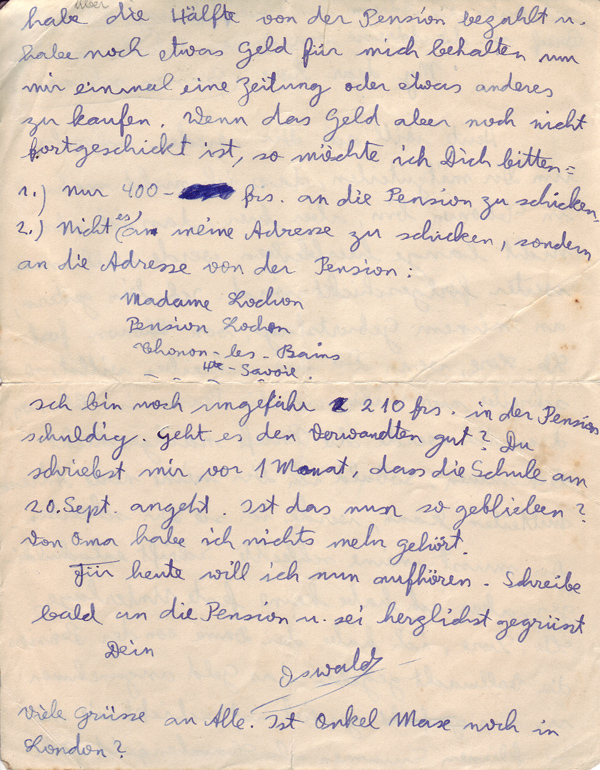 über
habe die Hälfte von der Pension bezahlt u.
habe noch etwas Geld für mich behalten um
mir einmal eine Zeitung oder etwas anderes
zu kaufen. Wenn das Geld aber noch nicht
fortgeschickt ist, so möchte ich Dich bitten:
1.) nur 400- frs. an die Pension zu schicken,
2.) Nicht es an meine Adresse zu schicken, sondern
an die Adresse von der Pension:
Madame Lochon
Pension Lochon
Thonon-les-Bains
Hte-Savoie.
Ich bin noch ungefähr 210 frs. in der Pension
schuldig. Geht es den Verwandten gut? Du
schriebst mir vor 1 Monat, dass die Schule am
20. Sept. angeht. Ist das nun so geblieben?
Von Oma habe ich nichts mehr gehört.
Für heute will ich nun aufhören. Schreibe
bald an die Pension u. sei herzlichst gegrüsst
Dein
Oswald
Viele Grüsse an Alle. Ist Onkel Max noch in
London?